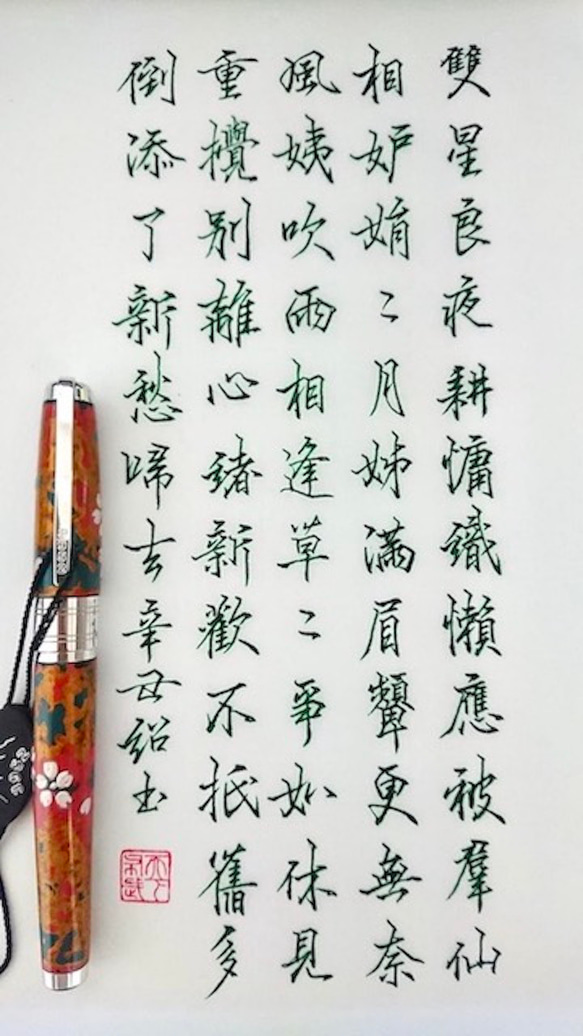 雙星良夜耕慵織懶應被羣仙
相妒娟〻月姊滿眉顰更無奈
風姨吹雨相逢草〻爭如休見
重攪別離心緒新歡不抵舊多
倒添了新愁歸去辛丑紹